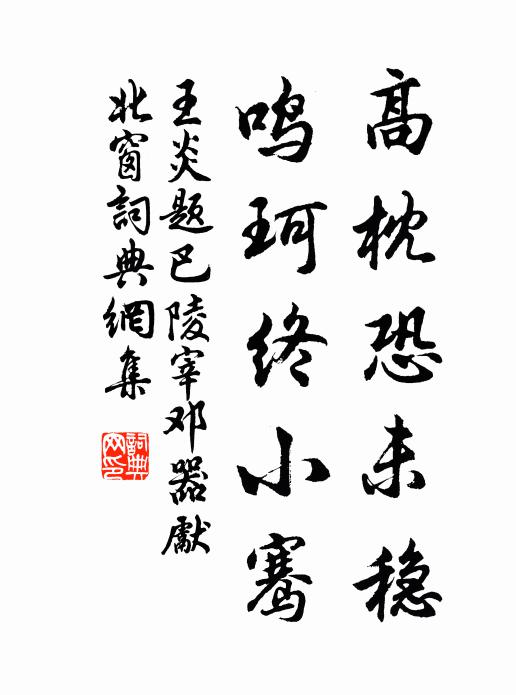 高枕恐未稳
鸣珂终小骞
王炎题巴陵宰邓器獻
北窗詞典網集
詞典网印